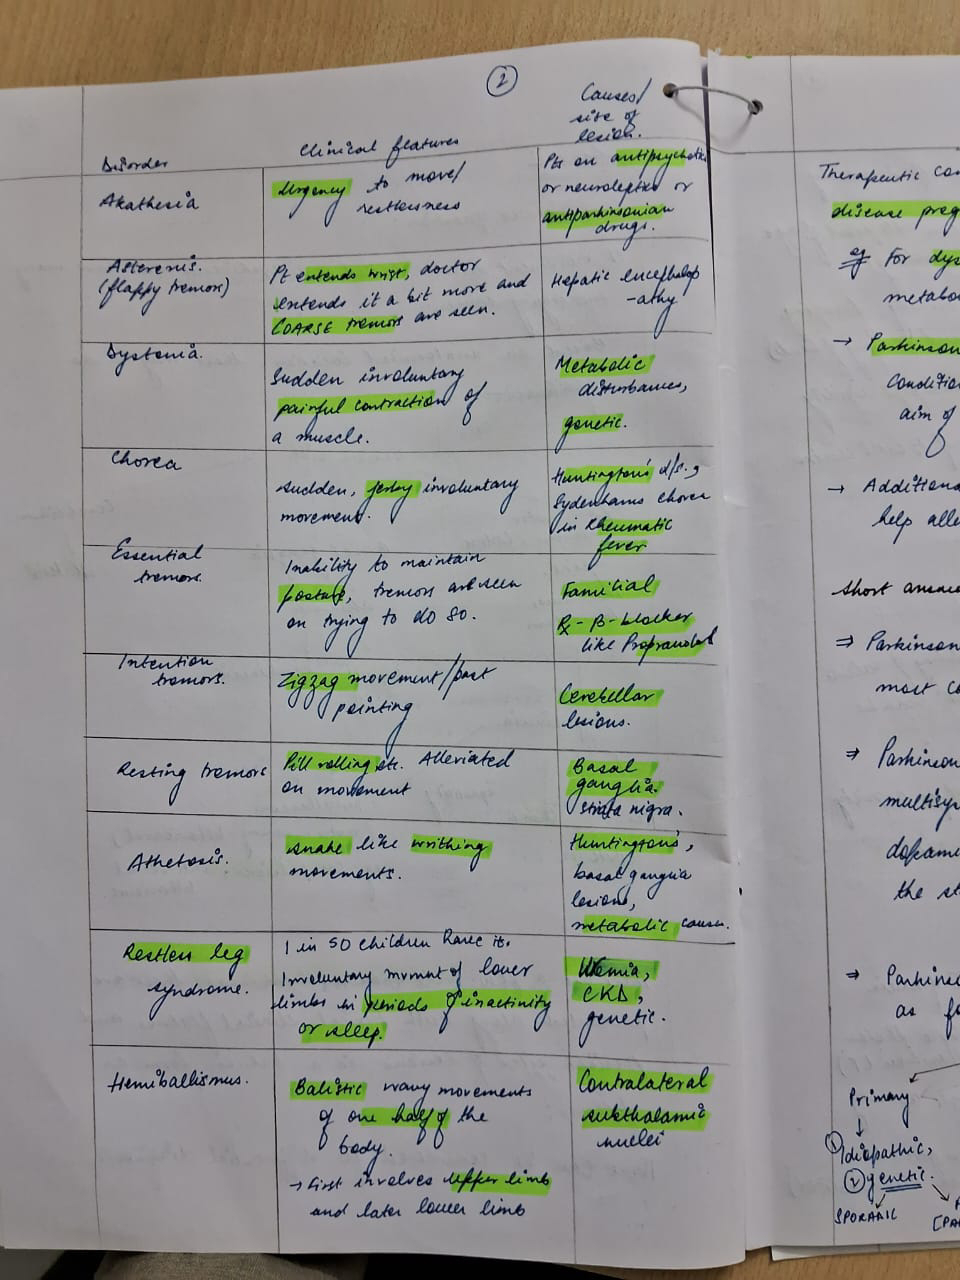 2
Disorder
Clinical features
Causes/
site of
lesion.
Akathesia
Urgency to move/
restlessness
Pts on antipsychotic
or neuroleptics or
antiparkinsonian
drugs.
Asterexis.
(flappy tremors)
Pt extends wrist, doctor
extends it a bit more and
COARSE tremors are seen.
Hepatic encephalop
-athy
Dystonia.
Sudden involuntary
painful contraction of
a muscle.
Metabolic
disturbances,
genetic.
Chorea
sudden, jerky involuntary
movement.
Huntington's d/s,
Sydenhams chorea
in Rheumatic
fever
Essential
tremors.
Inability to maintain
posture, tremors are seen
on trying to do so.
Familial
Rx- β-blocker
like Propranolol
Intention
tremors.
Zigzag movement/past
pointing
Cerebellar
lesions.
Resting tremors
Pill rolling etc. Alleviated
on movement
Basal
ganglia.
nigra.
Athetosis.
snake like writhing
movements.
Huntington's,
basal ganglia
lesions,
metabolic causes.
Restless leg
syndrome.
1 in 50 children have it.
Involuntary mvmnt of lower
limbs in periods of inactivity
or sleep.
Uremia,
CKD,
genetic.
Hemiballismus.
Balistic wavy movements
of one half of the
body.
→ First involves upper limb
and later lower limb
Contralateral
subthalamic
nuclei
Therapeutic con
disease prog
eg For dys
metabo
→ Parkinson
condition
aim of
→ Additiona
help alle
Short answe
⇒ Parkinson
most co
⇒ Parkinson
multisy
dopami
the st
⇒ Parkins
as fo
Primary
↓
① idiopathic,
② genetic.
SPORADIC